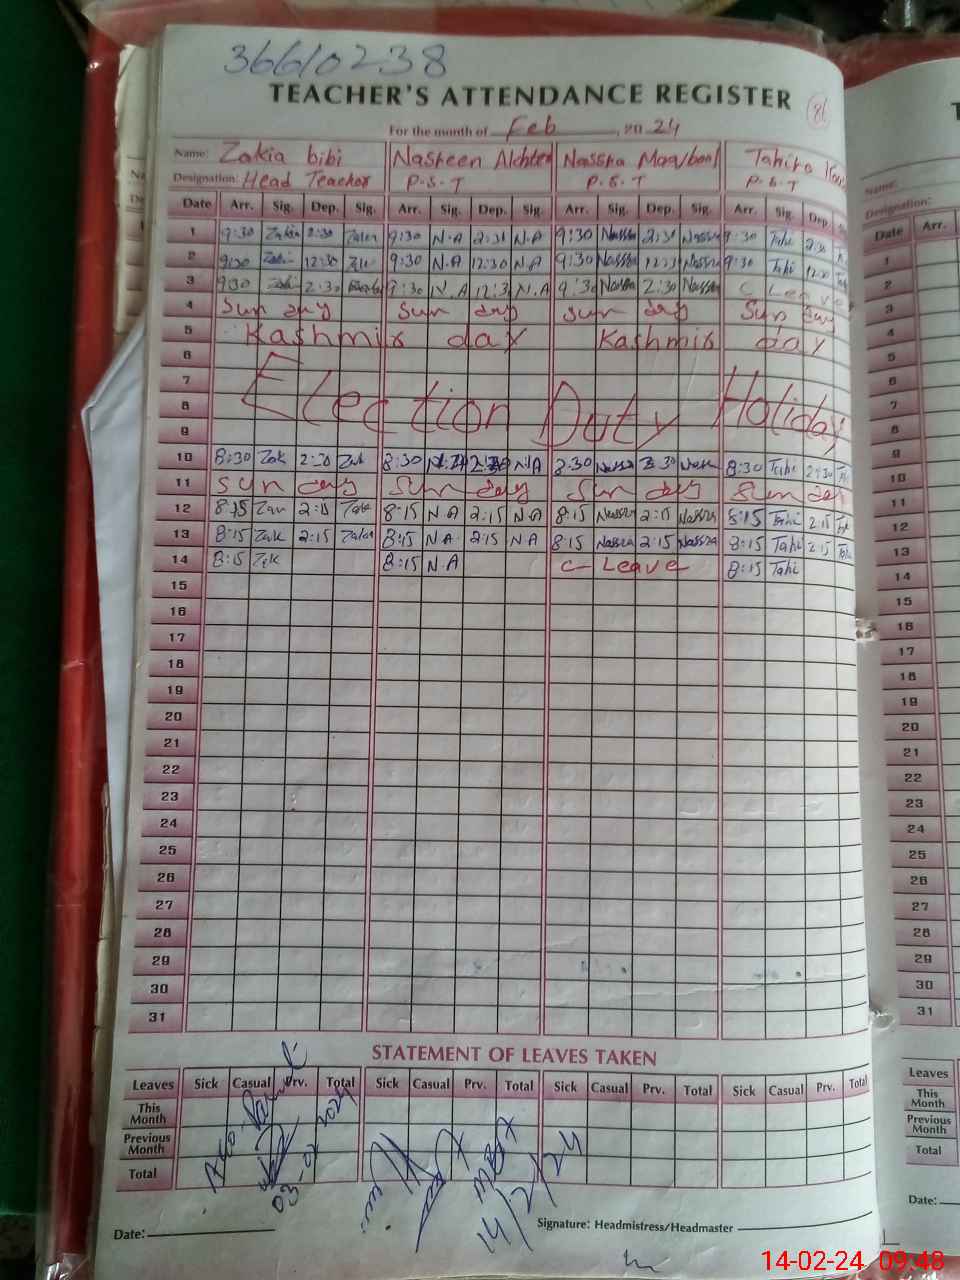 36610238
TEACHER'S ATTENDANCE REGISTER 86
For the month of Feb, 2024
Name: Zakia bibi Nasreen Akhter Nassra Maqbool Tahira
Designation: Head Teacher P.S.T P.S.T P.S.T
Date Arr. Sig. Dep. Sig. Arr. Sig. Dep. Sig. Arr. Sig. Dep. Sig. Arr. Sig. Dep
1 9:30 Zakia 2:30 9:30 N.A 2:30 N.A 9:30 Nassra 2:30 Nassra 9:30 Tahi 2:30
2 9:30 Zaki 12:30 9:30 N.A 12:30 N.A 9:30 Nassra 12:30 Nassra 9:30 Tahi 12:30
3 9:30 Zaki 2:30 9:30 N.A 12:30 N.A 9:30 Nassra 2:30 Nassra C Leave
4 Sun day Sun day Sun day Sun day
5 Kashmir day Kashmir day
6
7 Election Duty Holiday
8
9
10 8:30 Zak 2:30 Zak 8:30 N.A 2:30 N.A 8:30 Nassra 2:30 Nass 8:30 Tahi 2:30
11 Sun day Sun day Sun day Sun day
12 8:15 Zak 2:15 Zak 8:15 N.A 2:15 N.A 8:15 Nassra 2:15 Nassra 8:15 Tahi 2:15
13 8:15 Zak 2:15 Zakia 8:15 N.A 2:15 N.A 8:15 Nassra 2:15 Nassra 8:15 Tahi 2:15
14 8:15 Zak 8:15 N.A C- Leave 8:15 Tahi
15
16
17
18
19
20
21
22
23
24
25
26
27
28
29
30
31
STATEMENT OF LEAVES TAKEN
Leaves Sick Casual Prv. Total Sick Casual Prv. Total Sick Casual Prv. Total Sick Casual Prv. Total
This Month
Previous Month
Total
03-02-2024
14/2/24
Date: Signature: Headmistress/Headmaster
Name:
Designation:
Date Arr.
1
2
3
4
5
6
7
8
9
10
11
12
13
14
15
16
17
18
19
20
21
22
23
24
25
26
27
28
29
30
31
Leaves
This Month
Previous Month
Total
Date:
14-02-24 09:48